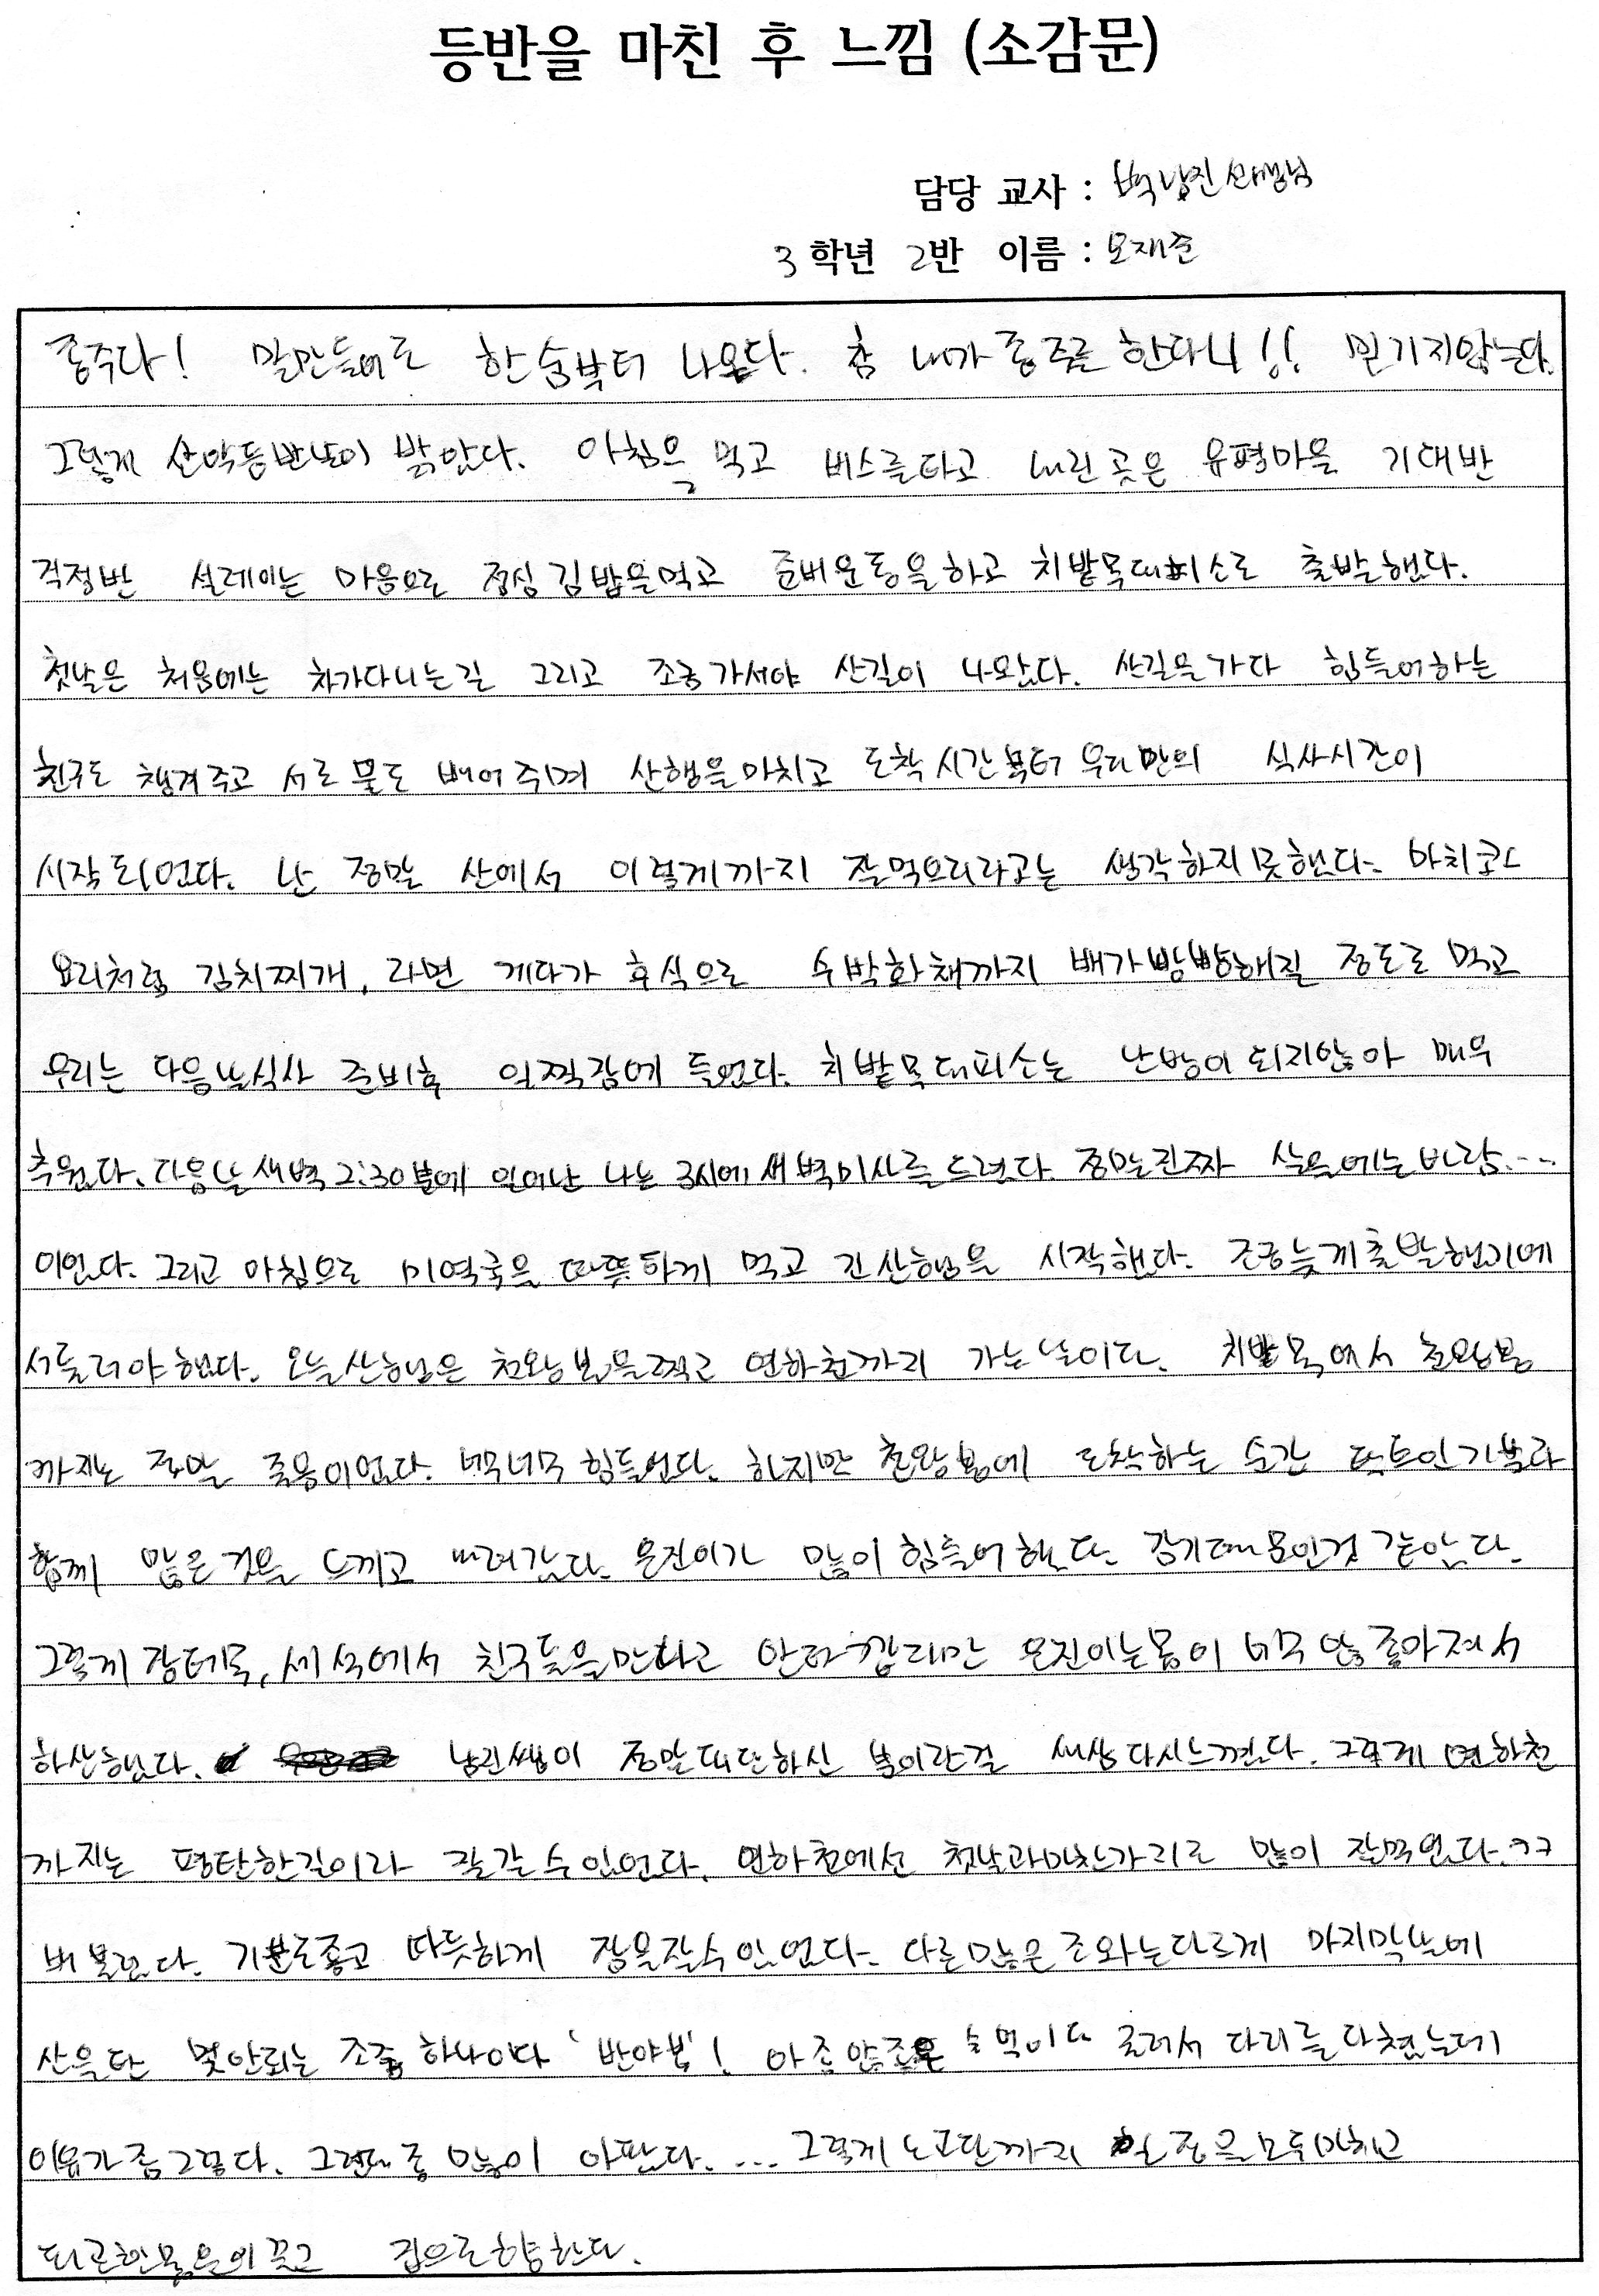 등반을 마친 후 느낌 (소감문)
담당 교사 : 박남진선생님
3 학년 2반 이름 : 오재준
종주다! 말만들어도 한숨부터 나온다. 참 내가 종주를 한다니!! 믿기지않는다.
그렇게 산악등반날이 밝았다. 아침을 먹고 버스를타고 내린 곳은 유평마을 기대반
걱정반 설레이는 마음으로 점심 김밥을먹고 준비운동을하고 치밭목대피소로 출발했다.
첫날은 처음에는 차가다니는길 그리고 조금가서야 산길이 나왔다. 산길을가다 힘들어하는
친구도 챙겨주고 서로 물도 빼어주며 산행을마치고 도착시간부터 우리만의 식사시간이
시작되었다. 난 정말 산에서 이렇게까지 잘먹으리라고는 생각하지못했다. 마치코스
요리처럼 김치찌개, 라면 게다가 후식으로 수박화채까지 배가빵빵해질 정도로 먹고
우리는 다음날식사 준비후 일찍잠에 들었다. 치밭목대피소는 난방이 되지않아 매우
추웠다. 다음날새벽2:30분에 일어난 나는 3시에새벽미사를드렸다. 정말진짜 실외에는바람...
이었다. 그리고 아침으로 미역국을 따뜻하게 먹고 긴산행을 시작했다. 조금늦게출발했기에
서둘러야했다. 오늘산행은 천왕봉을찍고 연하천까지 가는날이다. 치밭목에서 천왕봉
까지는 정말 죽음이었다. 너무너무 힘들었다. 하지만 천왕봉에 도착하는 순간 탁트인기분과
함께 많은것을 느끼고 내려갔다. 은진이가 많이힘들어했다. 감기때문인것 같았다.
그렇게 장터목, 세석에서 친구들을만나고 안타깝지만 은진이는몸이 너무 않좋아져서
하산했다. 남진쌤이 정말대단하신 분이란걸 새삼다시느꼈다. 그렇게 연하천
까지는 평탄한길이라 잘갈수있었다. 연하천에선 첫날과마찬가지로 많이 잘먹었다.ㅋㅋ
배불렀다. 기분도좋고 따듯하게 잠을잘수있었다. 다른많은조와는다르게 마지막날에
산을탄 몇안되는 조중 하나이다 '반야봉'! 아 좀 굴러서 다리를다쳤는데
이유가좀그렇다. 그런데 좀 많이 아팠다. ... 그렇게 노고단까지 모두마치고
피곤한몸을이끌고 집으로향한다.